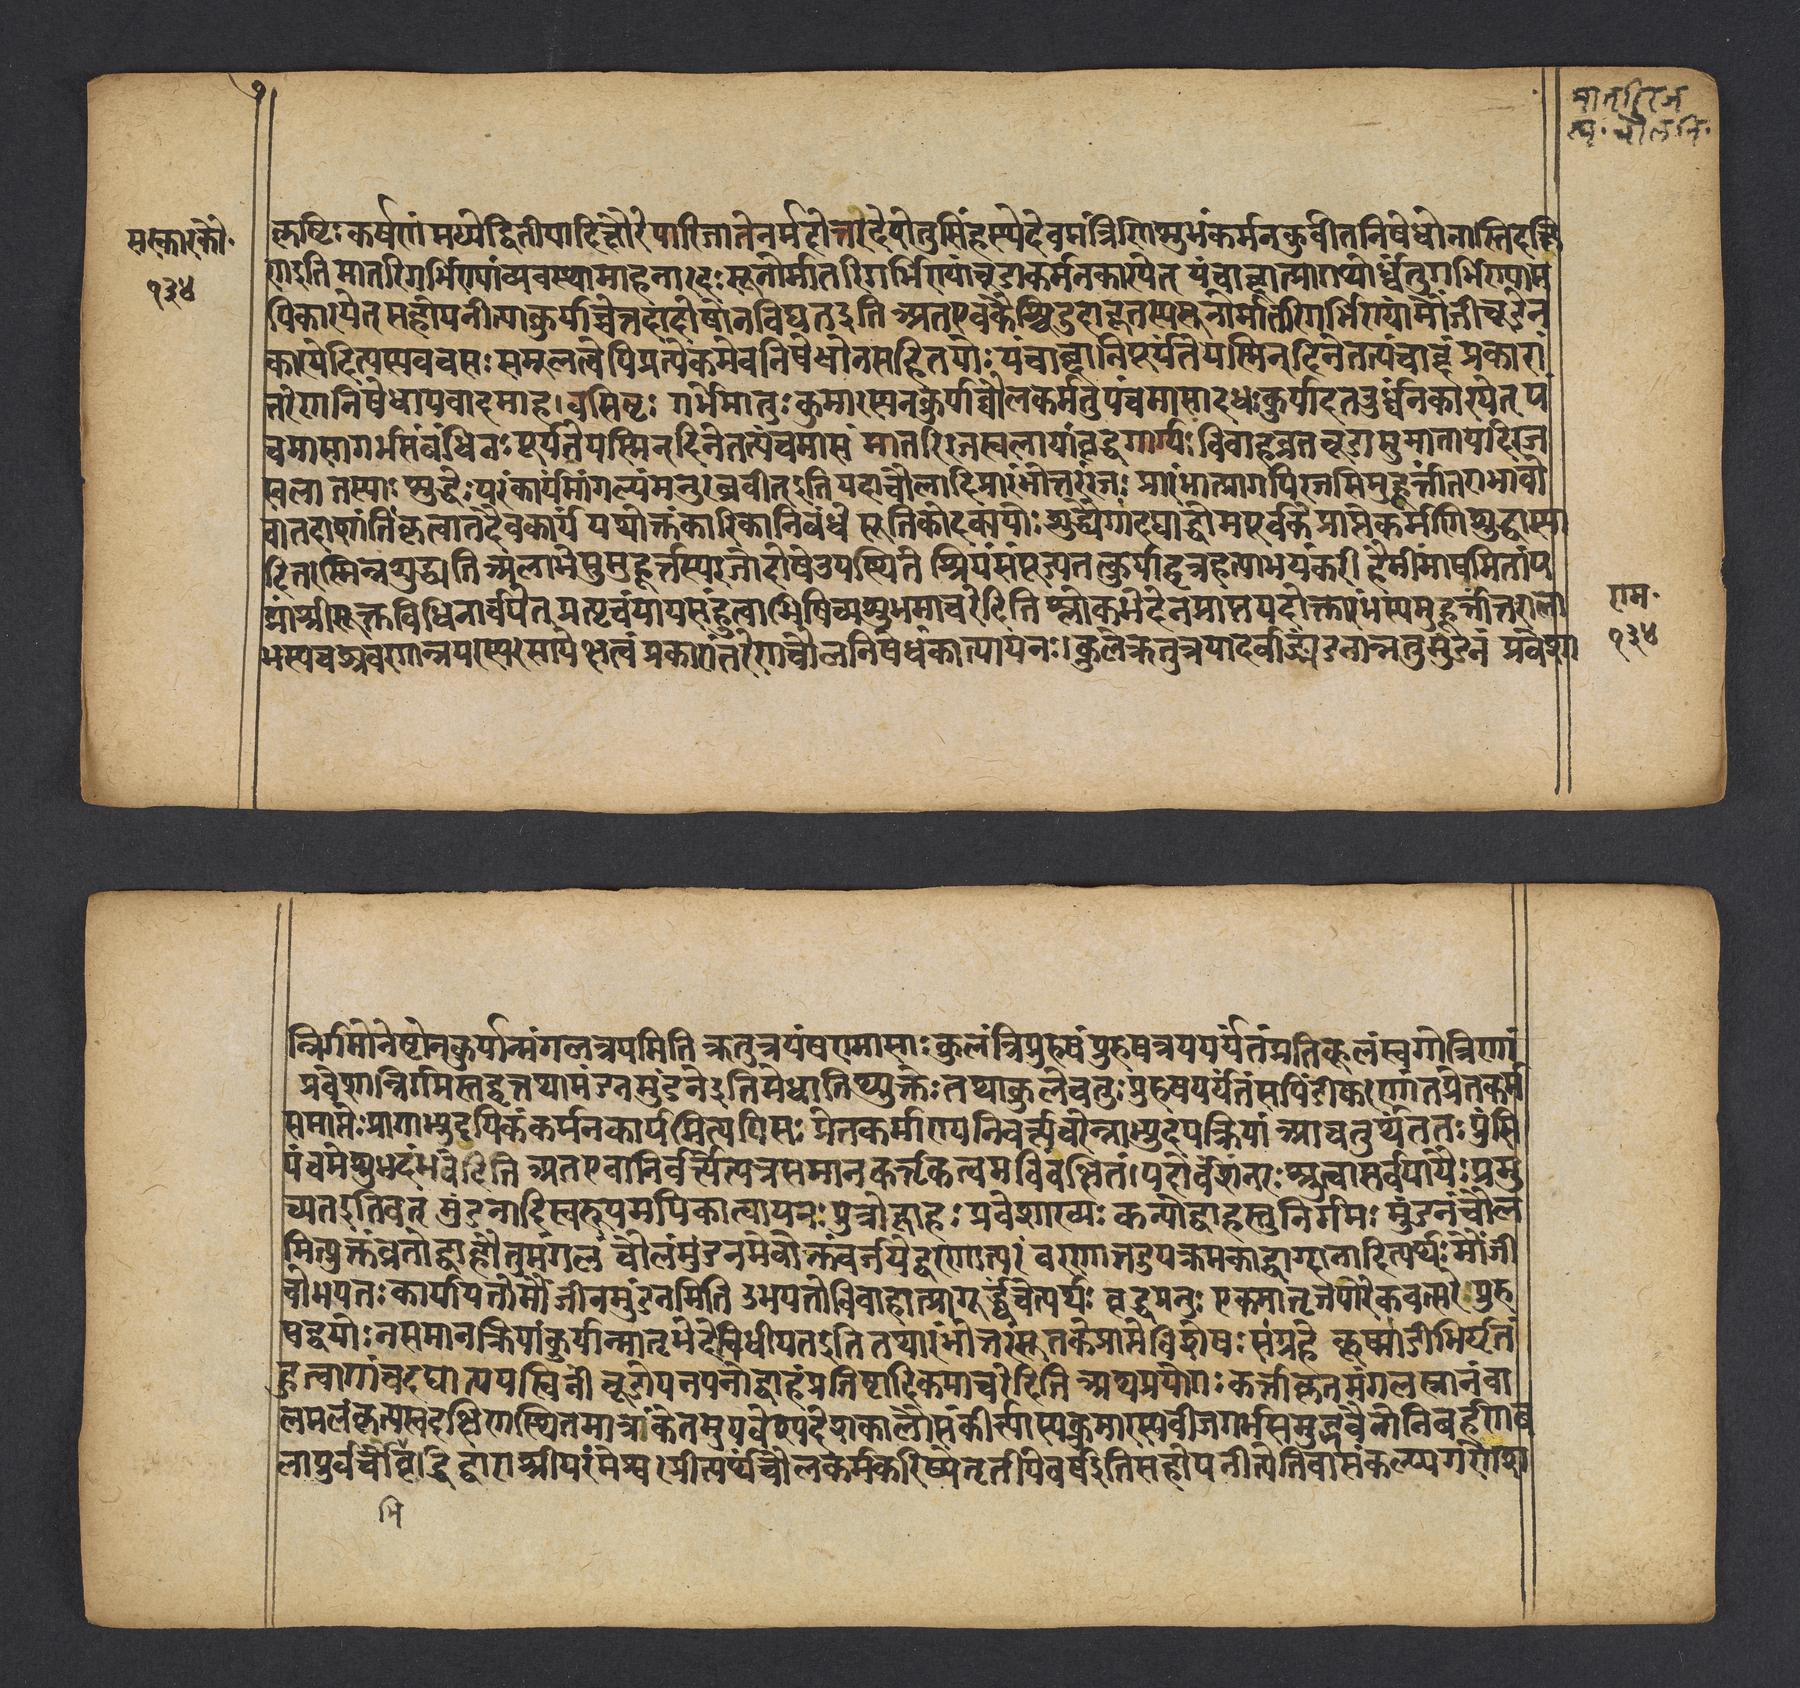 मातरि रज
स्व. चौलनि.
संस्कारकौ.
१३४
कृष्टिः कर्षणं मध्ये द्वितीयादि ज्ञौरे पारिजाते नर्मदोत्तरे देशे तु सिंहस्थे देवमंत्रिणि शुभं कर्म न कुर्वीत निषेधो नास्ति दक्षि
णे इति मातरि गर्भिण्यां व्यवस्थामाह नारदः सूनोर्मातरि गर्भिण्यां चूडाकर्म न कारयेत् पंचाब्दात्प्रागथोर्ध्वं तु गर्भिण्याम
पि कारयेत् सहोपनीत्या कुर्याच्चेत्तदा दोषो न विद्यत इति अत एव कैश्चिदुदाहृतस्य सूनोर्मातरि गर्भिण्यां मौंजी चूडे न
कारयेदित्यस्य वचसः समूलत्वेपि प्रत्येकमेव निषेधो न सहितयोः पंचाब्दानि पूर्यंते यस्मिन् दिने तत्पंचाब्दं प्रकारां
तरेण निषेधापवादमाह । वसिष्टः गर्भे मातुः कुमारस्य न कुर्याच्चौलकर्म तु पंचमासादधः कुर्यादत ऊर्ध्वं न कारयेत् पं
चमासा गर्भसंबंधिनः पूर्यंते यस्मिन् दिने तत्पंचमासं मातरि रजस्वलायां वृद्धगार्ग्यः विवाहव्रतचूडासु माता यदि रज
स्वला तस्याः शुद्धेः परं कार्यं मांगल्यं मनुरब्रवीत् इति यदा चौलादि प्रारंभोत्तरं रजः प्रारंभात्प्रागपि रजसि मुहूर्त्तांतराभावो
वा तदा शांतिं कृत्वा तदैव कार्यं यथोक्तं कारिकानिबंधे सूतिकोदक्ययोः शुद्ध्यै गां दद्याद्धोमपूर्वकं प्राप्ते कर्मणि शुद्धा स्या
दितरस्मिन्न शुद्ध्यति अलाभे सुमुहूर्त्तस्य रजोदोषे उपस्थिते श्रियं संपूज्य तत्कुर्याद्वृत्रहत्याभयंकरीं हैमीं माषमितां प
द्मां श्रीसूक्तविधिनार्चयेत् प्रत्यृचं पायसं हुत्वाभिषिच्य शुभमाचरेदिति श्लोकभेदेन प्राप्तपदोक्तारंभस्य मुहूर्त्तांतराला
भस्य च श्रवणान्न परस्परसापेक्षत्वं प्रकारांतरेण चौलनिषेधं कात्यायनः । कुले ऋतुत्रयादर्वाङ्मंडनान्न तु मुंडनं प्रवेशा
राम.
१३४
न्निर्गमो नेष्टो न कुर्यान्मंगलत्रयमिति ऋतुत्रयं षण्मासाः कुलं त्रिपुरुषं पुरुषत्रयपर्यंतं प्रतिकूलं स्वगोत्रिणां
प्रवेशान्निर्गमस्तद्वत्तथा मंडनमुंडने इति मेधातिथ्युक्तेः तथा कुले चतुः पुरुषपर्यंतं सपिंडीकरणांतप्रेतकर्म
समाप्तेः प्रागाभ्युदयिकं कर्म न कार्यमित्यपि सः प्रेतकर्माण्यनिवर्त्य चरेन्नाभ्युदयक्रियां आचतुर्थं ततः पुंसि
पंचमे शुभदं भवेदिति अत एवानिर्वर्त्येत्यत्र समानकर्त्तृकत्वमविवक्षितं । पदोर्वेशंतरः श्रुत्वा सर्वपापैः प्रमु
च्यत इतिवत् मुंडनादि स्वरूपमपि कात्यायनः पुत्रोद्वाहः प्रवेशाख्यः कन्योद्वाहस्तु निर्गमः मुंडनं चौल
मित्युक्तं व्रतोद्वाहौ तु मंगलं चौलं मुंडनमेवोक्तं वर्जयेद्वरणात्परं वरणात्तदुपक्रमकाद्वाग्दानादित्यर्थः मौंजी
चोभयतः कार्या यतो मौंजी न मुंडनमिति उभयतो विवाहात्प्रागूर्द्ध्वं चेत्यर्थः वृद्धमनुः एकमातृजयोरेकवत्सरे पुरु
षद्वयोः न समानक्रियां कुर्यान्मातृभेदे विधीयत इति तथारंभोत्तरं सूतके प्राप्ते विशेषः संग्रहे कूष्मांडीभिर्घृतं
हुत्वा गां च दद्यात्पयस्विनीं चूडोपनयनोद्वाहप्रतिष्टादिकमाचरेदिति अथ प्रयोगः कर्त्ता कृतमंगलस्नानं बा
लमलंकृत्य स्वदक्षिणास्थितमात्रांके तमुपवेश्य देशकालौ संकीर्त्यास्य कुमारस्य बीजगर्भसमुद्भवैनोनिबर्हणब
लायुर्वर्चोभिवृद्धिद्वारा श्रीपरमेश्वरप्रीत्यर्थं चौलकर्म करिष्ये तृतीये वर्षे इति सहोपनीत्येति वा संकल्प्य गणेशं
भि